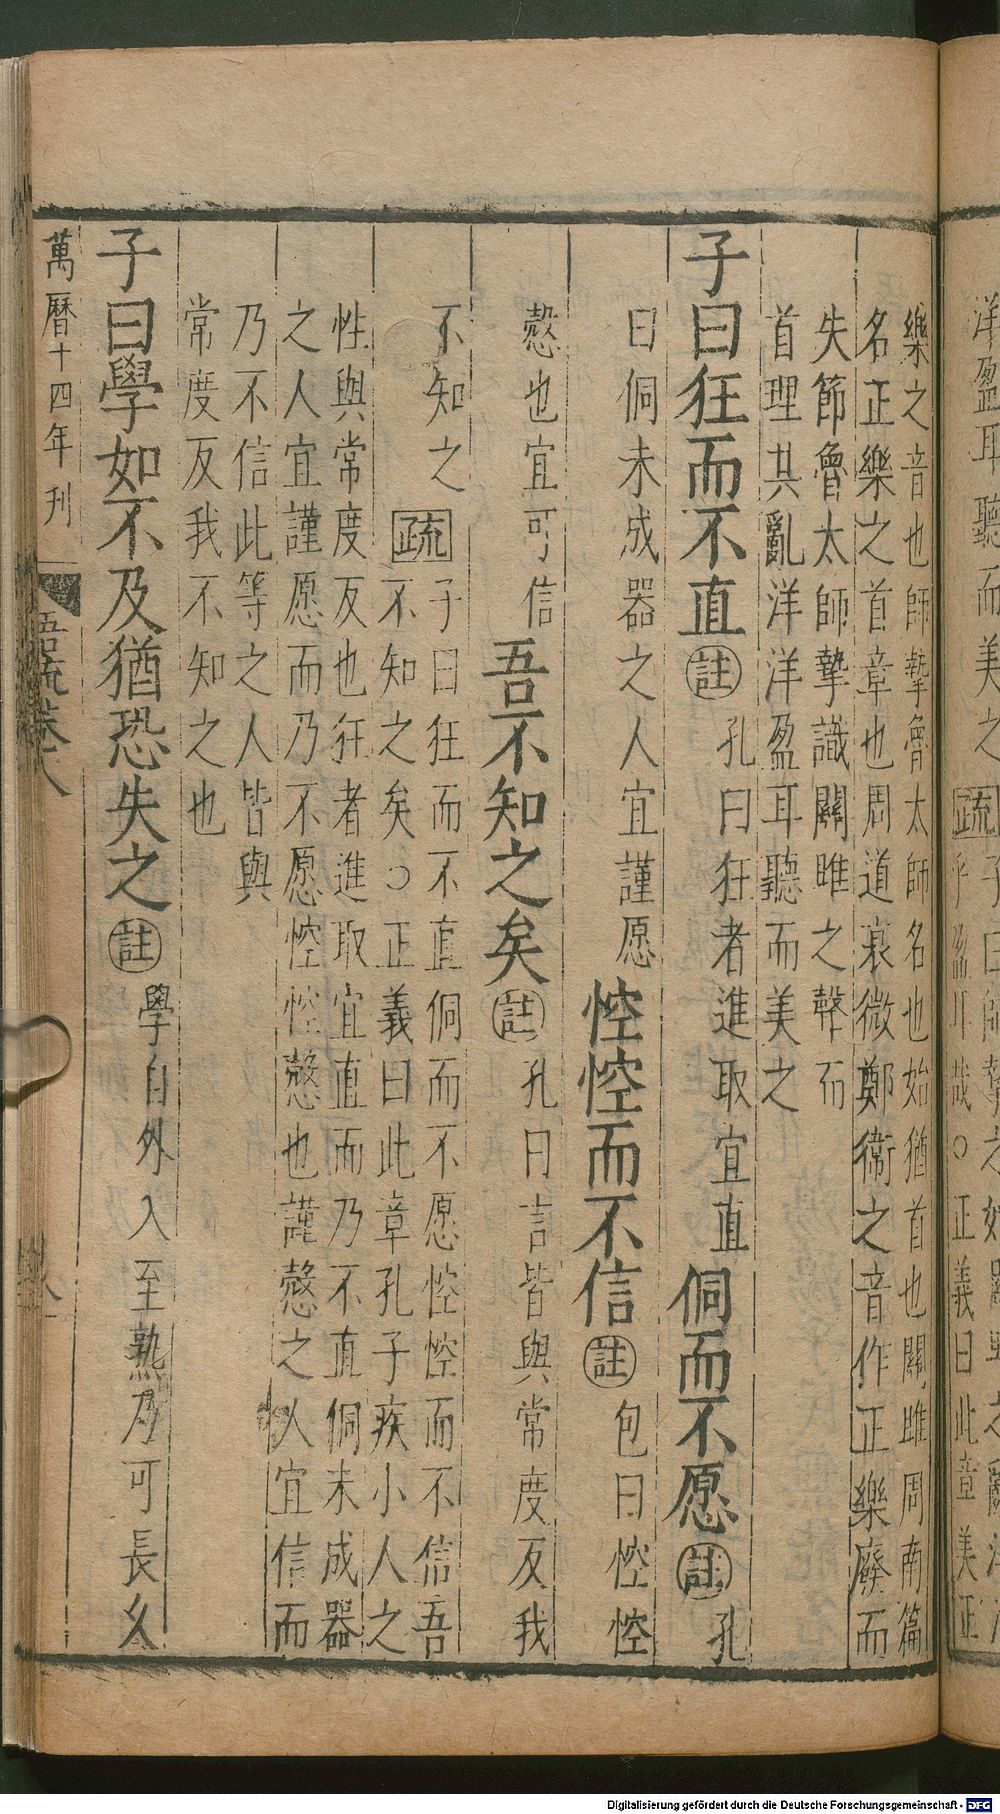 洋盈耳聽而美之疏子曰師摯之始關雎之亂洋
乎盈耳哉○正義曰此章美正
樂之音也師摯魯太師名也始猶首也關雎周南篇
名正樂之首章也周道衰微鄭衞之音作正樂廢而
失節魯太師摯識關雎之聲而
首理其亂洋洋盈耳聽而美之
子曰狂而不直註孔曰狂者進取宜直侗而不愿註孔
曰侗未成器之人宜謹愿悾悾而不信註包曰悾悾
慤也宜可信吾不知之矣註孔曰言皆與常度反我
不知之疏子曰狂而不直侗而不愿悾悾而不信吾
不知之矣○正義曰此章孔子疾小人之
性與常度反也狂者進取宜直而乃不直侗未成器
之人宜謹愿而乃不愿悾悾慤也謹慤之人宜信而
乃不信此等之人皆與
常度反我不知之也
子曰學如不及猶恐失之註學自外入至熟乃可長久
萬曆十四年刊 語疏卷八
Digitalisierung gefördert durch die Deutsche Forschungsgemeinschaft - DFG